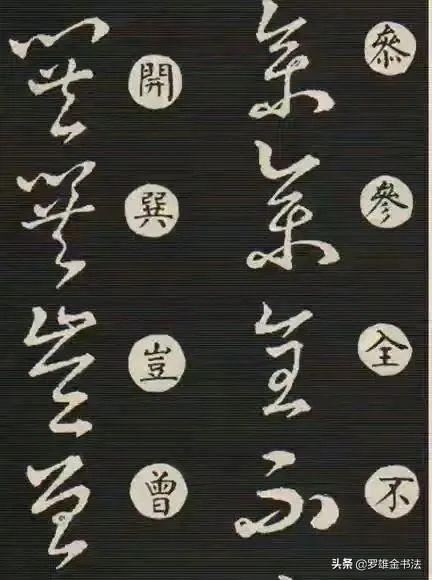 參
全
不
開
巽
豈
曾
头条 @罗雄金书法